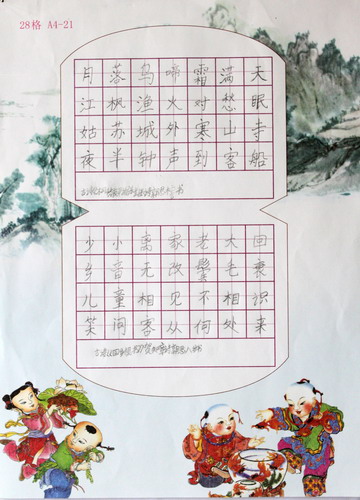 28格 A4-21
月落乌啼霜满天
江枫渔火对愁眠
姑苏城外寒山寺
夜半钟声到客船
少小离家老大回
乡音无改鬓毛衰
儿童相见不相识
笑问客从何处来